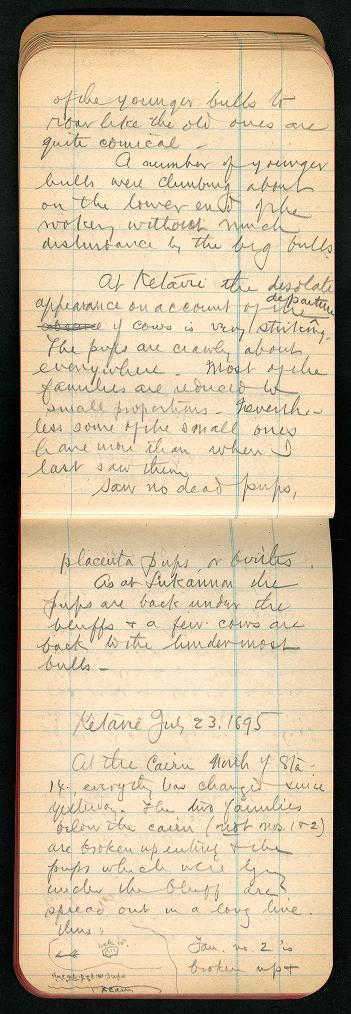 of the younger bulls to
roar like the old ones are
quite comical -
A number of younger
bulls were climbing about
on the lower end of the
rookery without much
disturbance by the big bulls.
At Ketavie the desolate
appearance on account of the departure
absence of cows is very striking.
The pups are crawly about
everywhere. Most of the
families are reduced to
small proportions - Neverthe-
less some of the small ones
have more than when I
last saw them
Saw no dead pups,
placenta pups, or
As at Lukannon the
pups are back under the
bluffs & a few cows are
back to the hindermost
bulls -
Ketavie July 23, 1895
At the Cairn North of Sta.
14, everythg has changed since
yesterday. The two families
below the cairn (not nos. 1 & 2)
are broken up entirely & the
pups which were
under the bluff are
spread out in a long line.
thus:
Fam. no. 2 is
broken up &